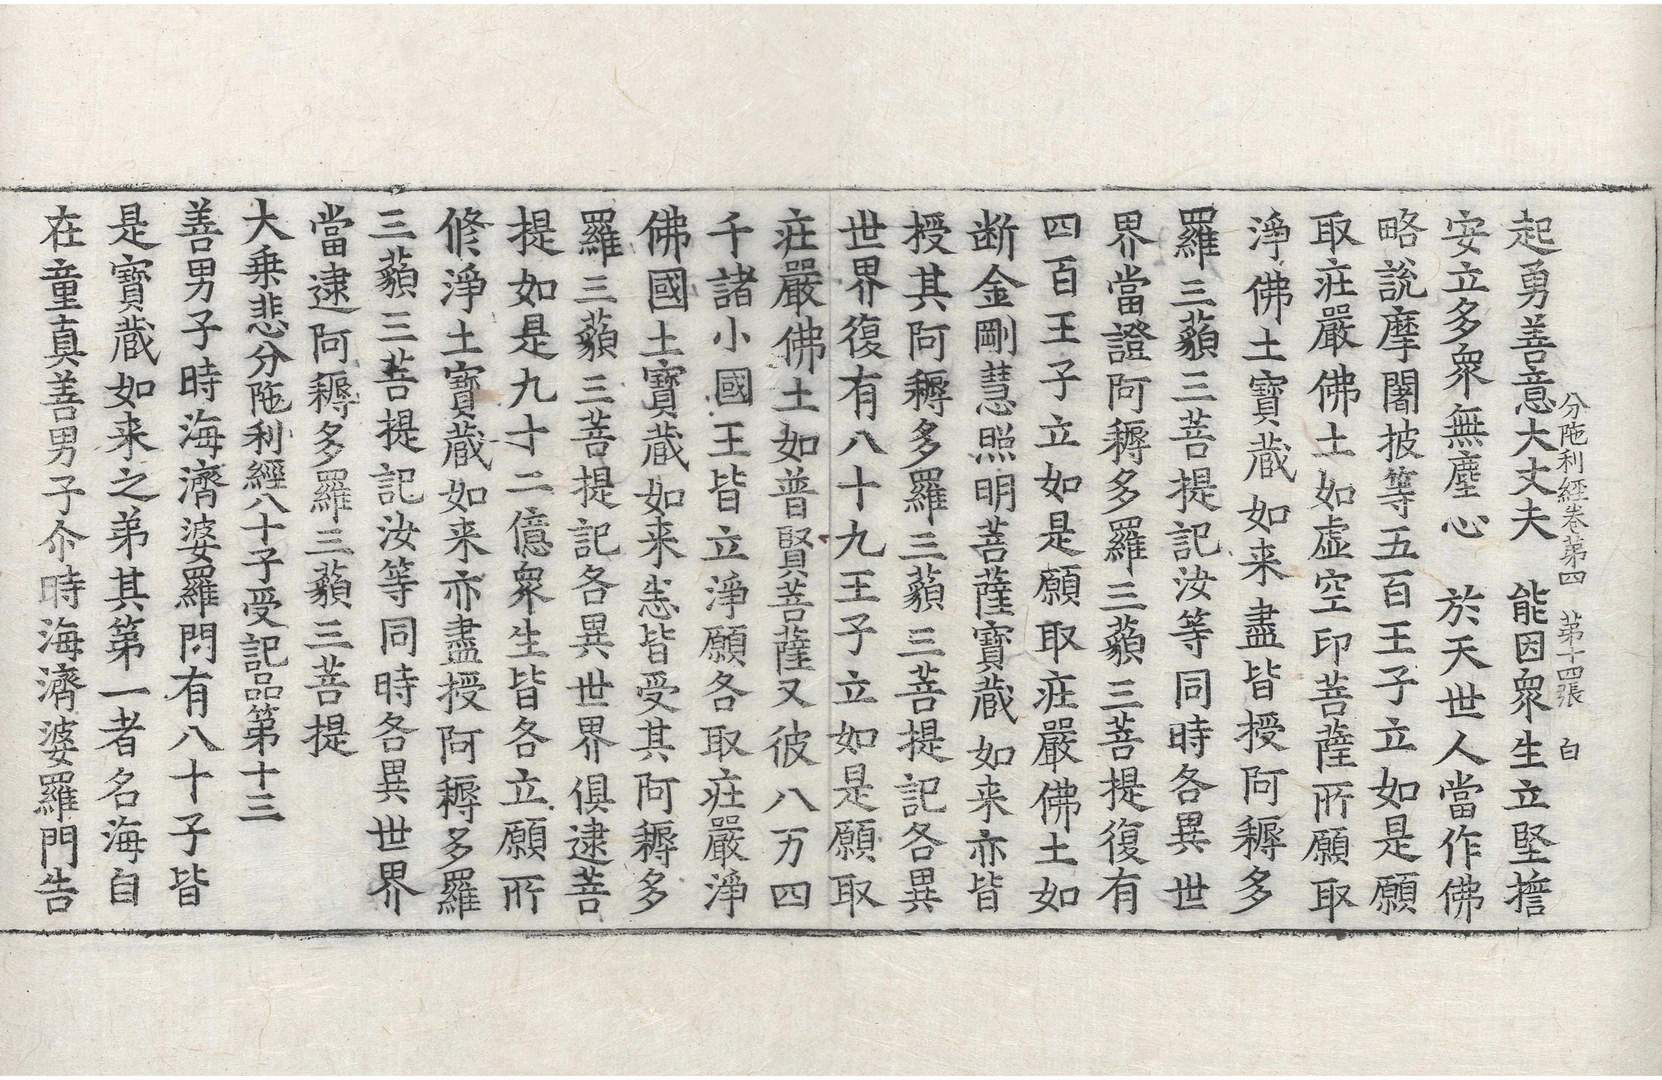 分陁利經卷第四　第十四張　白
起勇善意大丈夫　能因衆生立堅擔
安立多衆無塵心　於天世人當作佛
略說摩闍披等五百王子立如是願
取庄嚴佛土如虛空印菩薩所願取
淨佛土寶藏如来盡皆授阿耨多
羅三藐三菩提記汝等同時各異世
界當證阿耨多羅三藐三菩提復有
四百王子立如是願取庄嚴佛土如
断金剛慧照明菩薩寶藏如来亦皆
授其阿耨多羅三藐三菩提記各異
世界復有八十九王子立如是願取
庄嚴佛土如普賢菩薩又彼八万四
千諸小國王皆立淨願各取庄嚴淨
佛國土寶藏如来悉皆受其阿耨多
羅三藐三菩提記各異世界俱逮菩
提如是九十二億衆生皆各立願所
修淨土寶藏如来亦盡授阿耨多羅
三藐三菩提記汝等同時各異世界
當逮阿耨多羅三藐三菩提
大乗悲分陁利經八十子受記品第十三
善男子時海濟婆羅門有八十子皆
是寶藏如来之弟其第一者名海自
在童真善男子尒時海濟婆羅門告